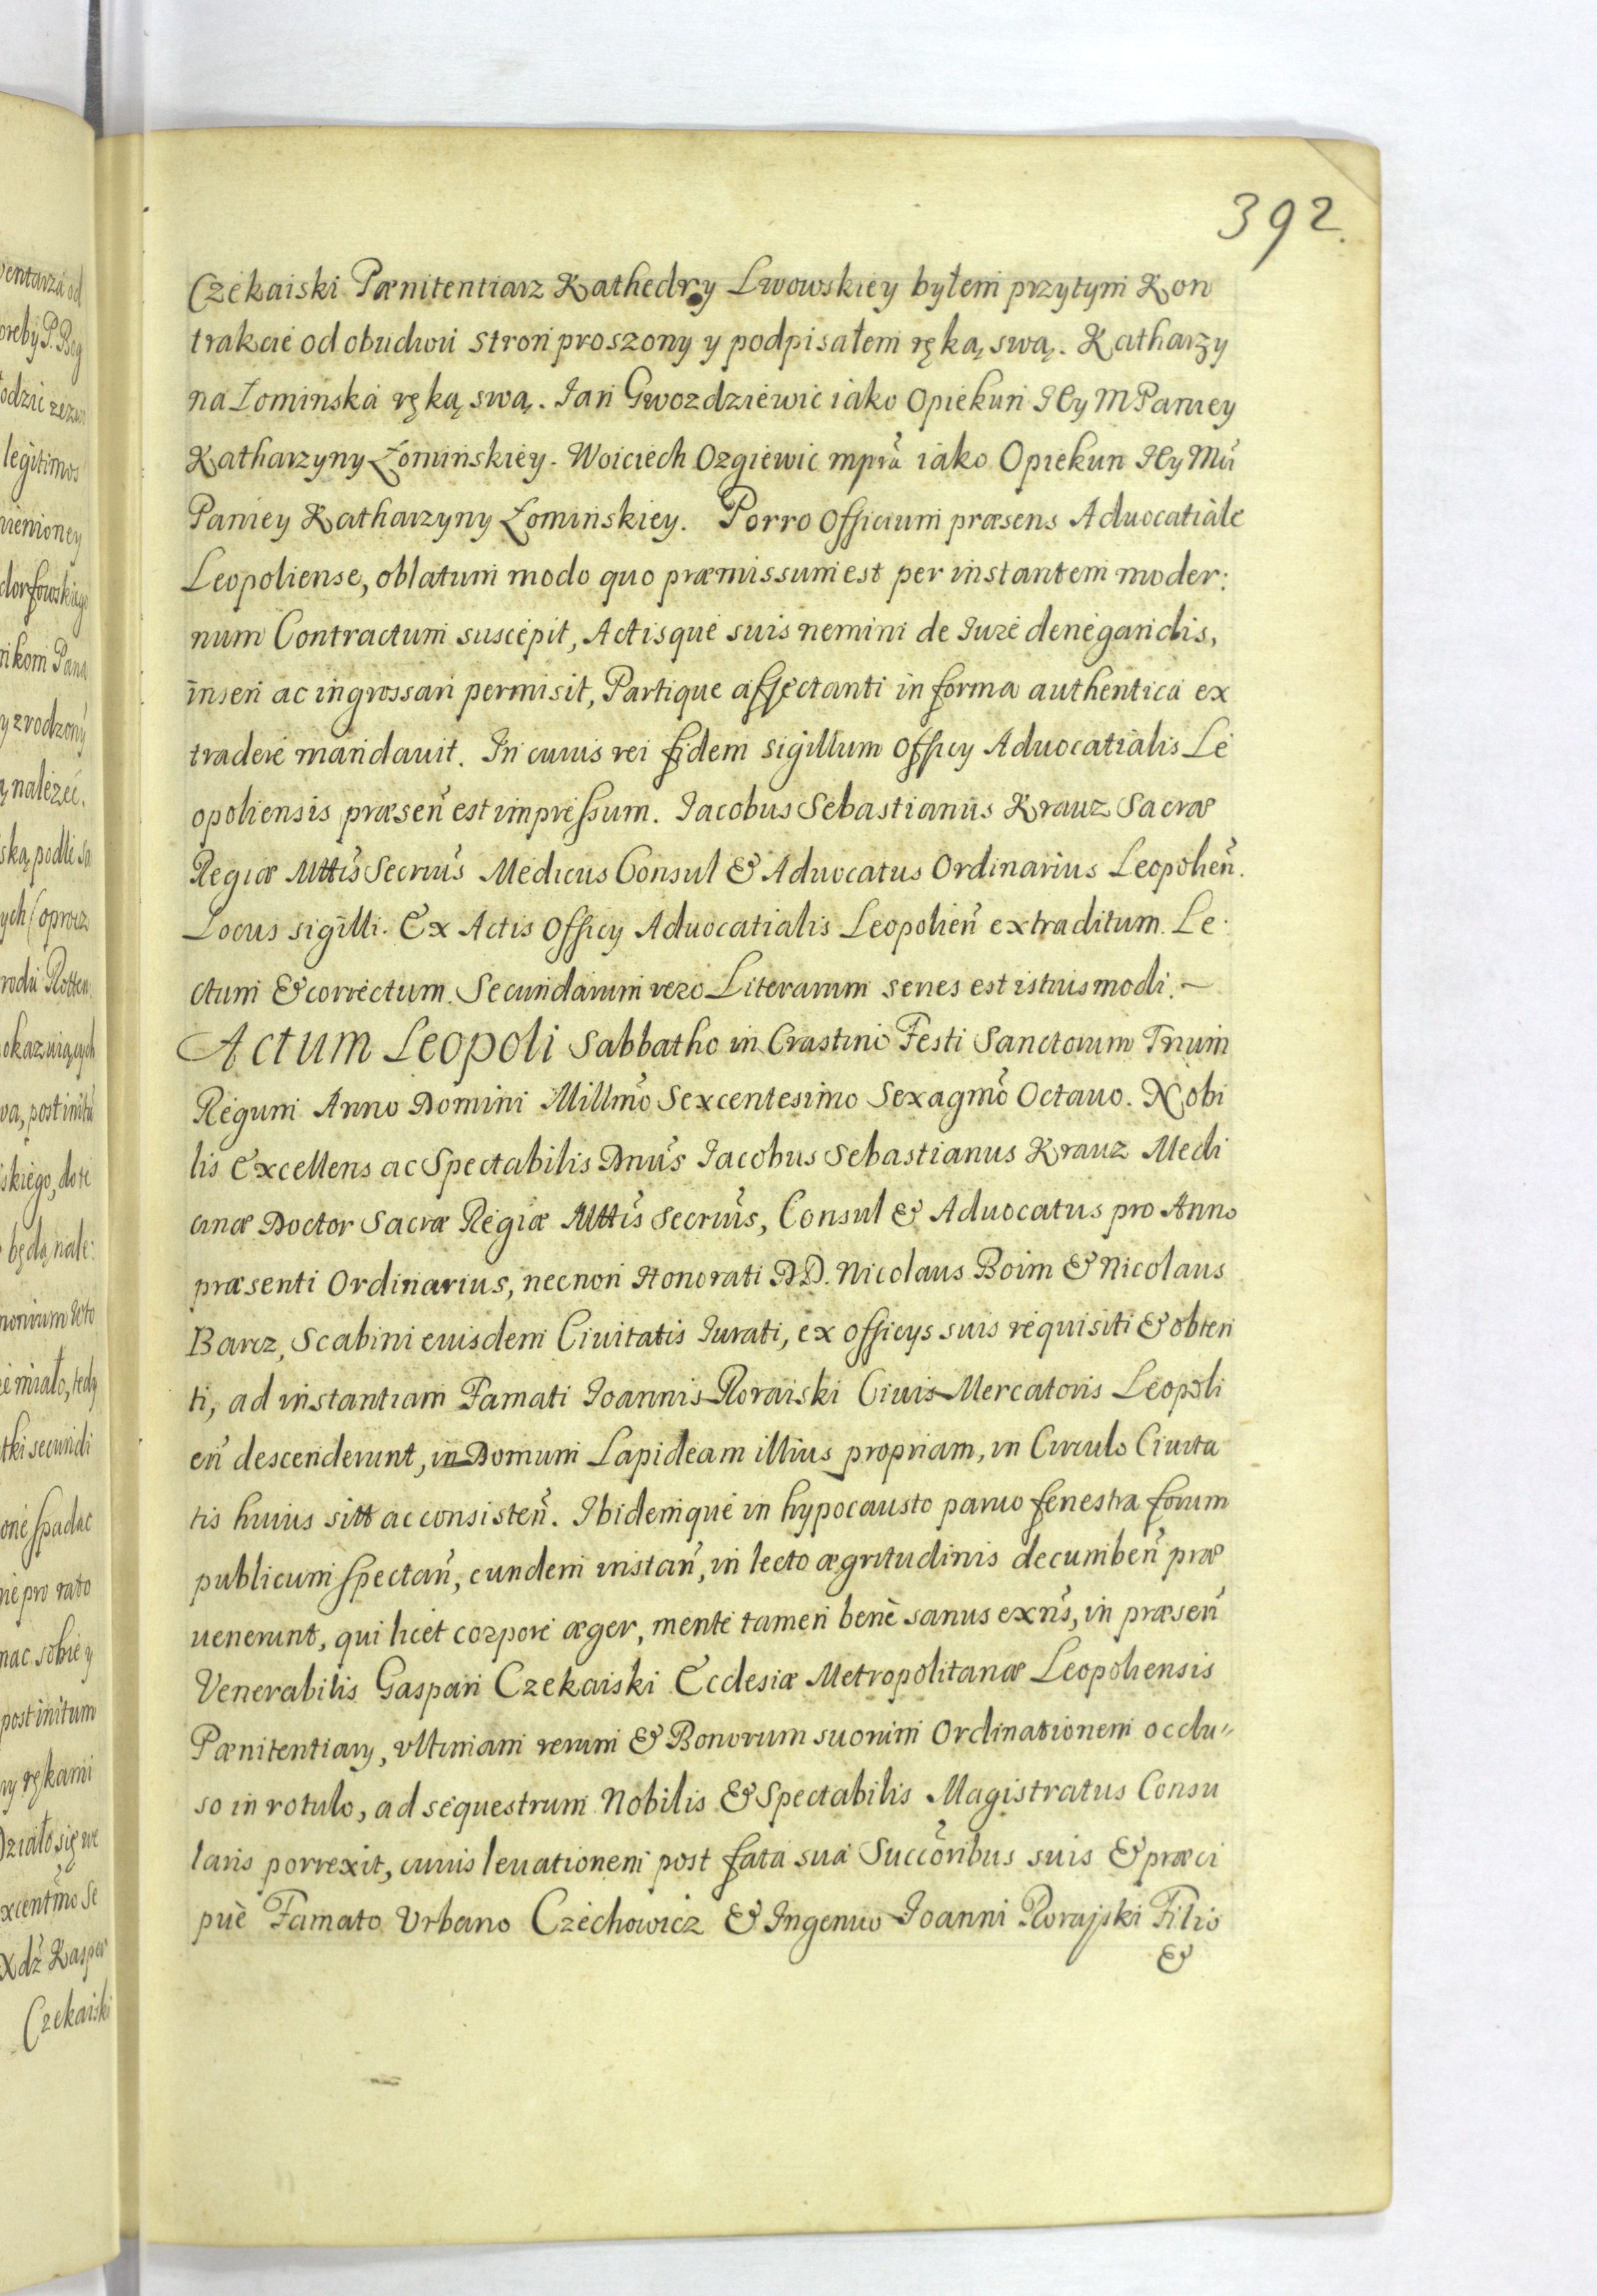 392.
Czekaiski Pænitentiarz Kathedry Lwowskiey byłem przytym Kon
trakcie od obudwu stron proszony y podpisałem ręką swą. Katharzy
na Łominska ręką swą. Jan Gwozdziewic iako Opiekun JEy M Paniey
Katharzyny Łominskiey. Woiciech Ozgiewic mprà iako Opiekun JEy Mci
Paniey Katharzyny Łominskiey. Porro Officium præsens Aduocatiale
Leopoliense, oblatum modo quo præmissum est per instantem moder:
num Contractum suscepit, Actisque suis nemini de Jure denegandis,
inseri ac ingrossari permisit, Partique affectanti in forma authentica ex
tradere mandauit. In cuius rei fidem sigillum Officy Aduocatialis Le
opoliensis præsen̄ est impressum. Jacobus Sebastianus Krauz Sacræ
Regiæ Mttis Secrius Medicus Consul & Aduocatus Ordinarius Leopolien̄.
Locus sigilli. Ex Actis Officy Aduocatialis Leopolien̄ extraditum. Le:
ctum & correctum. Secundarum vero Literarum series est istiusmodi. ~
Actum Leopoli Sabbatho in Crastino Festi Sanctorum Trium
Regum Anno Domini Millmo Sexcentesimo Sexagmo Octauo. Nobi
lis Excellens ac Spectabilis Dnus Jacobus Sebastianus Krauz Medi
cinæ Doctor Sacræ Regiæ Mttis Secrius, Consul & Aduocatus pro Anno
præsenti Ordinarius, necnon Honorati DD. Nicolaus Boim & Nicolaus
Barcz, Scabini eiusdem Ciuitatis Jurati, ex officys suis requisiti & obten
ti, ad instantiam Famati Joannis Roraiski Ciuis Mercatoris Leopoli
en̄ descenderunt, in Domum Lapideam illius propriam, in Circulo Ciuita
tis huius sitt ac consisten̄. Ibidemque in hypocausto paruo fenestra forum
publicum spectan̄, eundem instan̄, in lecto ægritudinis decumben̄ præ
uenerunt, qui licet corpore æger, mente tamen benè sanus exn̄s, in præsen̄
Venerabilis Gaspari Czekaiski Ecclesiæ Metropolitanæ Leopoliensis
Pænitentiary, vltimam rerum & Bonorum suorum Ordinationem occlu"
so in rotulo, ad sequestrum Nobilis & Spectabilis Magistratus Consu
laris porrexit, cuius leuationem post fata sua Succoribus suis & præci
puè Famato Vrbano Czechowicz & Ingenuo Joanni Rorajski Filio
&
ventarza od
legitimos
mienioney
nikom Pana
y zrodzony
ą nalezec.
ską, podle sa
ych (oprocz
okazuiących
va, post initu
skiego, do te
będą nale:
e miało, tedy
tki secundi
ne pro rato
nac sobie y
post initum
ny rękami
Działo się we
xcentmo Se
Xdz Kasper
Czekaiski